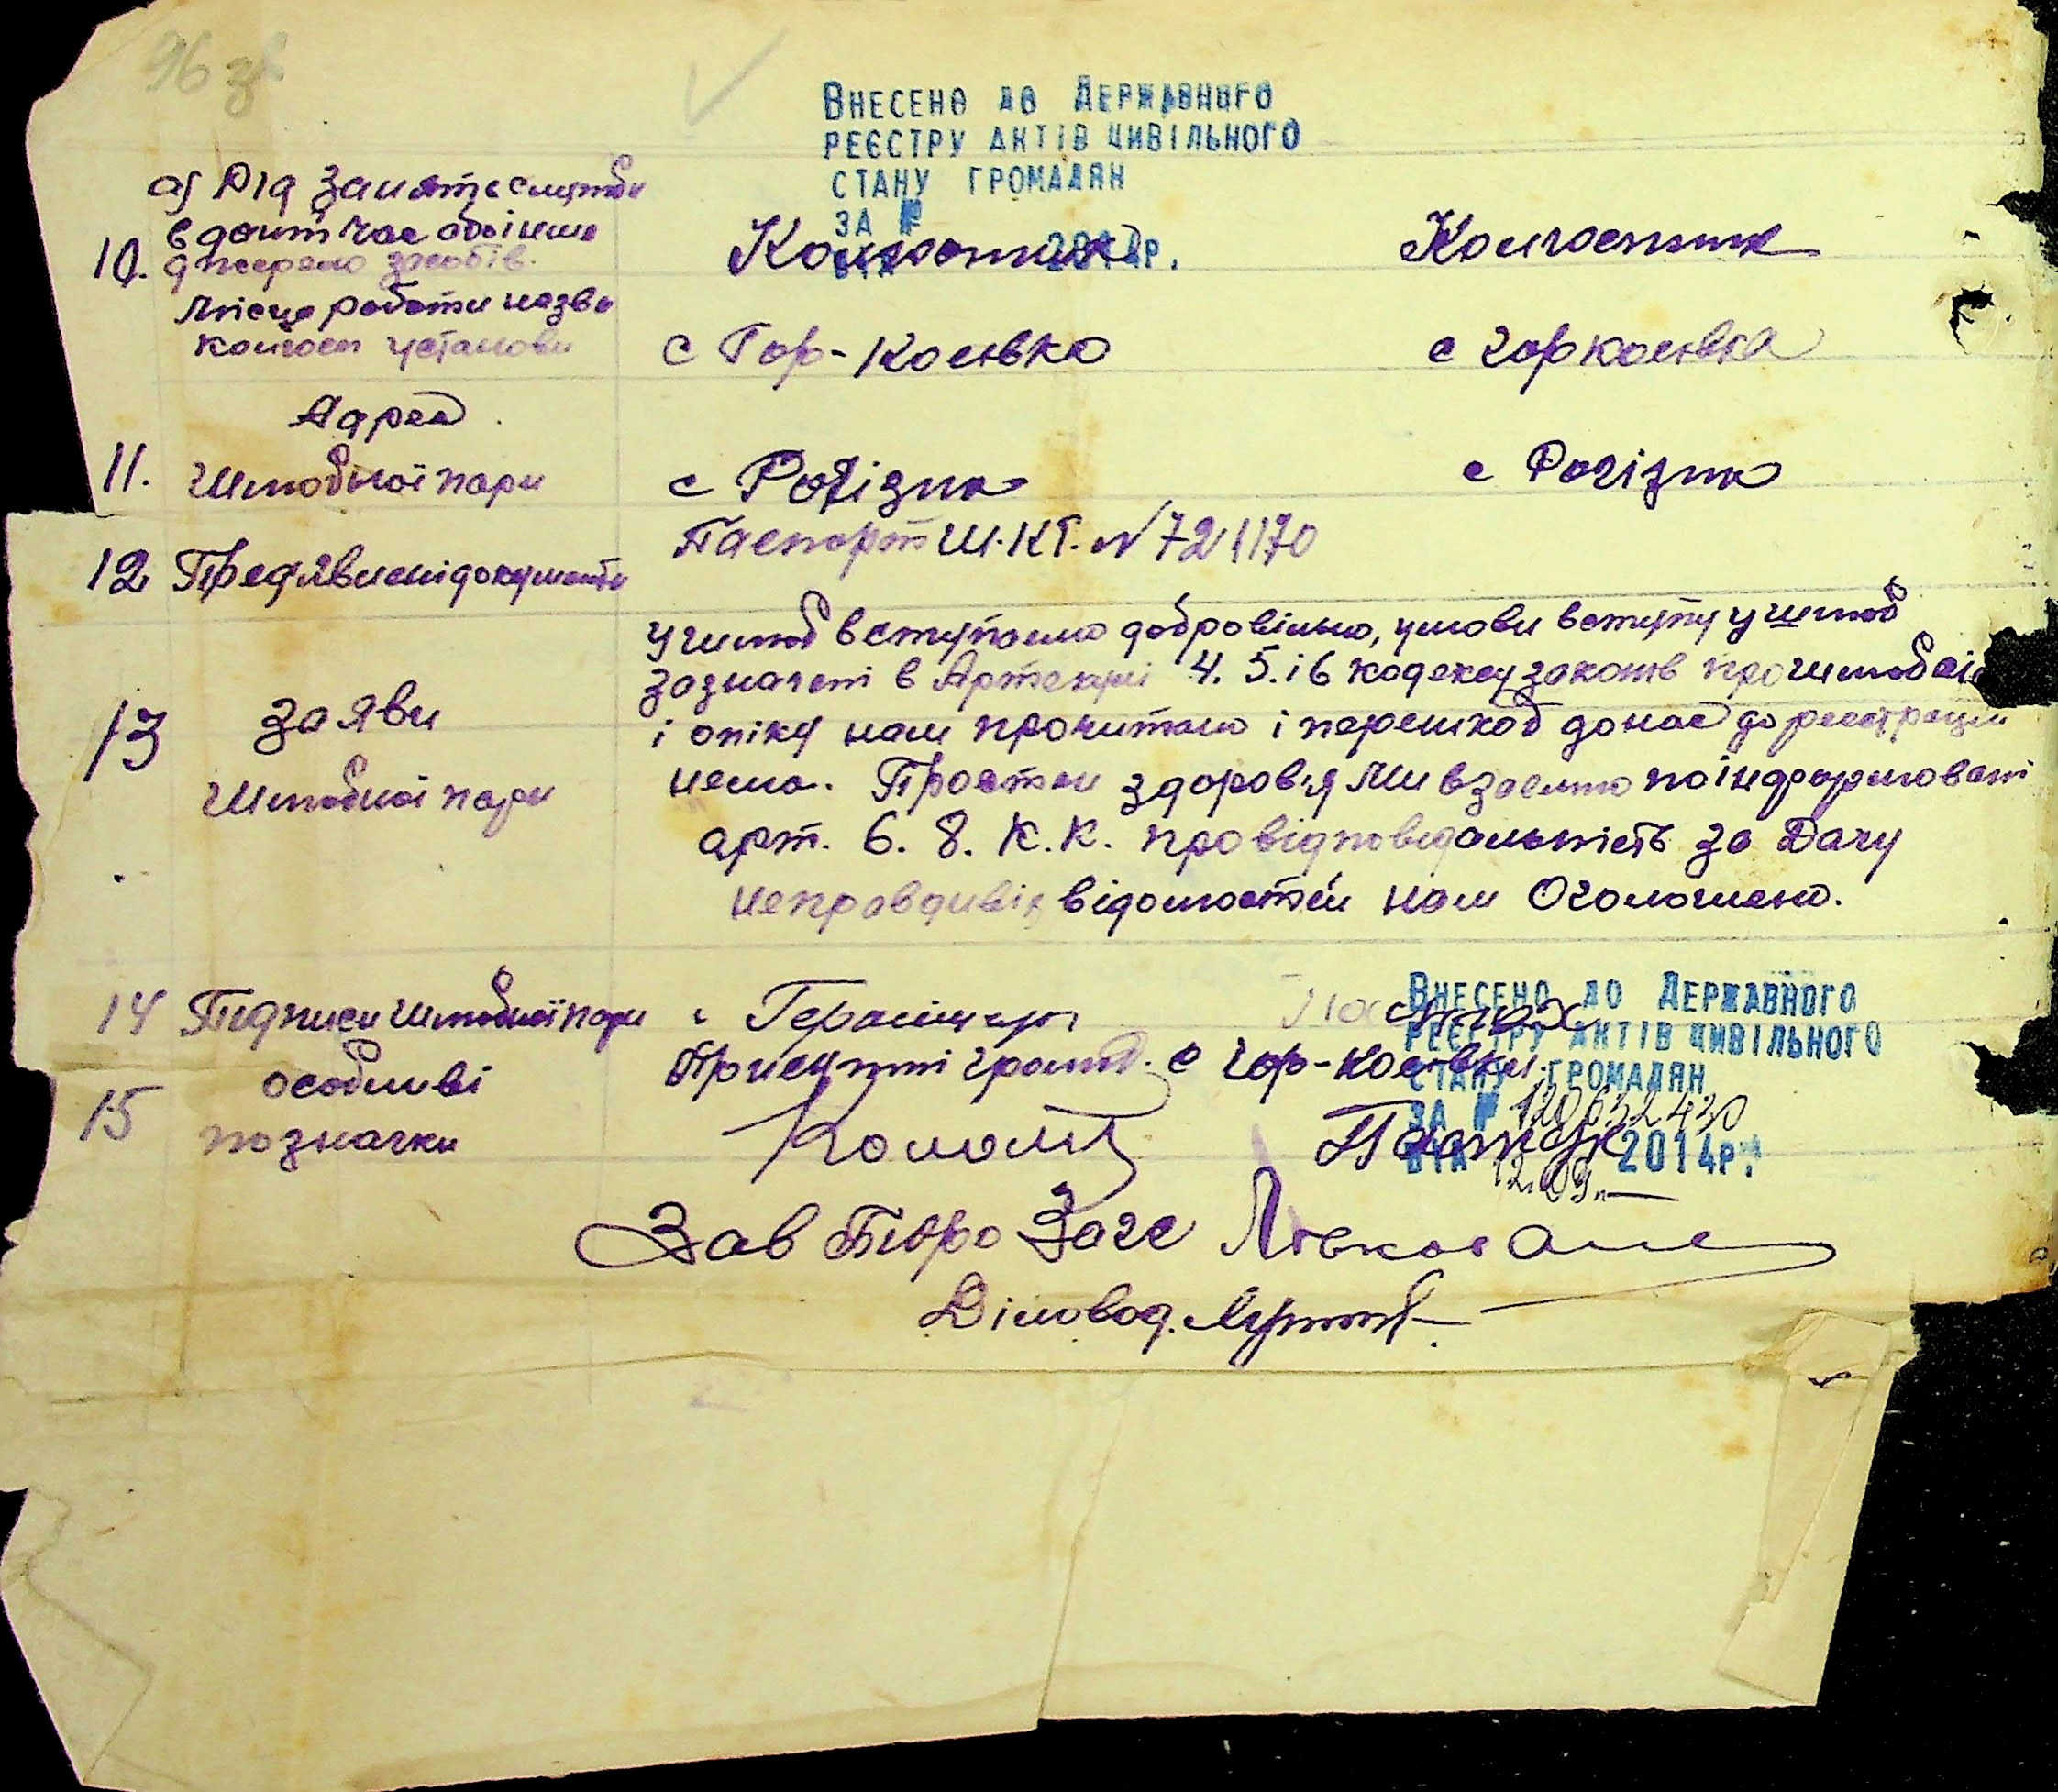 96 зв
ВНЕСЕНО ДО ДЕРЖАВНОГО
РЕЄСТРУ АКТІВ ЦИВІЛЬНОГО
СТАНУ ГРОМАДЯН
ЗА №
ВІД 2014Р.
а) Рід занять служби
в даний час або інше
10. джерело засобів. Колгоспник Колгоспник
Місце роботи назва
колгосп установи с Гор-Колівка с Горколівка
Адрес
11. Шлюбної пари с Рогізна с Рогізна
Паспорт Ш.КГ. № 721170
12 Предявлені документи
У шлюб вступаємо добровільно, умови вступу у шлюб
зазначені в Артекулі 4. 5. і 6 кодексу законів про шлюб
13 Заяви і опіку нам прочитано і перешкод до нас до реєстрації
Шлюбної пари нема. Про стан здоров'я Ми взаємно поінформовані
арт. 6. 8. К. К. про відповідальність за Дачу
неправдивих відомостей нам Оголошено.
ВНЕСЕНО ДО ДЕРЖАВНОГО
14 Підписи Шлюбної пари
РЕЄСТРУ АКТІВ ЦИВІЛЬНОГО
особливі Присутні громад. с Гор-Колівки.
СТАНУ ГРОМАДЯН
ЗА № 120632430
15 позначки
ВІД 12.09. 2014Р.
Зав Бюро Загс
Діловод.